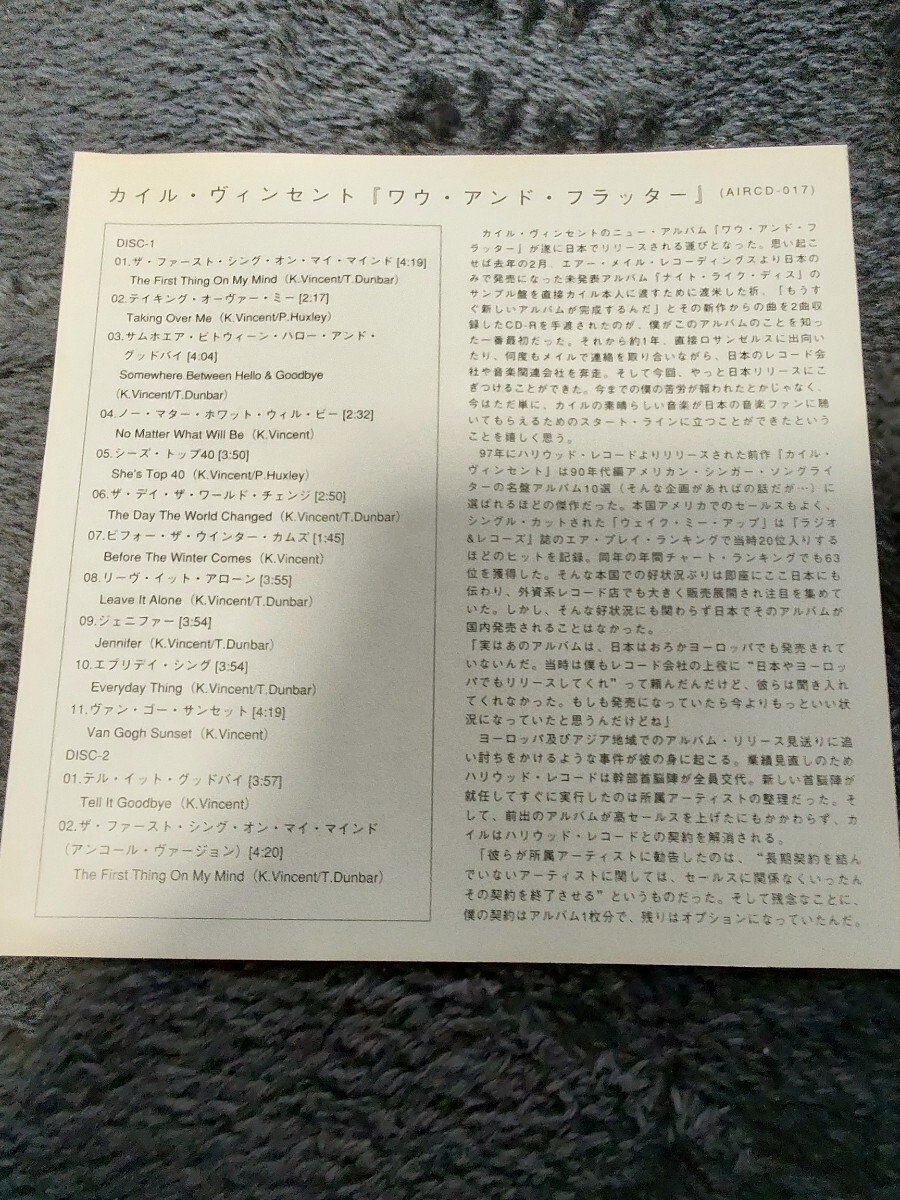 カイル・ヴィンセント『ワウ・アンド・フラッター』(AIRCD-017)
DISC-1
01.ザ・ファースト・シング・オン・マイ・マインド [4:19]
The First Thing On My Mind（K.Vincent/T.Dunbar）
02.テイキング・オーヴァー・ミー [2:17]
Taking Over Me（K.Vincent/P.Huxley）
03.サムホエア・ビトウィーン・ハロー・アンド・
グッドバイ [4:04]
Somewhere Between Hello & Goodbye
（K.Vincent/T.Dunbar）
04.ノー・マター・ホワット・ウィル・ビー [2:32]
No Matter What Will Be（K.Vincent）
05.シーズ・トップ40 [3:50]
She's Top 40（K.Vincent/P.Huxley）
06.ザ・デイ・ザ・ワールド・チェンジ [2:50]
The Day The World Changed（K.Vincent/T.Dunbar）
07.ビフォー・ザ・ウインター・カムズ [1:45]
Before The Winter Comes（K.Vincent）
08.リーヴ・イット・アローン [3:55]
Leave It Alone（K.Vincent/T.Dunbar）
09.ジェニファー [3:54]
Jennifer（K.Vincent/T.Dunbar）
10.エブリデイ・シング [3:54]
Everyday Thing（K.Vincent/T.Dunbar）
11.ヴァン・ゴー・サンセット [4:19]
Van Gogh Sunset（K.Vincent）
DISC-2
01.テル・イット・グッドバイ [3:57]
Tell It Goodbye（K.Vincent）
02.ザ・ファースト・シング・オン・マイ・マインド
（アンコール・ヴァージョン）[4:20]
The First Thing On My Mind（K.Vincent/T.Dunbar）
カイル・ヴィンセントのニュー・アルバム『ワウ・アンド・フ
ラッター』が遂に日本でリリースされる運びとなった。思い起こ
せば去年の2月、エアー・メイル・レコーディングスより日本の
みで発売になった未発表アルバム『ナイト・ライク・ディス』の
サンプル盤を直接カイル本人に渡すために渡米した折、「もうす
ぐ新しいアルバムが完成するんだ」とその新作からの曲を2曲収
録したCD-Rを手渡されたのが、僕がこのアルバムのことを知っ
た一番最初だった。それから約1年、直接ロサンゼルスに出向い
たり、何度もメイルで連絡を取り合いながら、日本のレコード会
社や音楽関連会社を奔走。そして今回、やっと日本リリースにこ
ぎつけることができた。今までの僕の苦労が報われたとかじゃなく、
今はただ単に、カイルの素晴らしい音楽が日本の音楽ファンに聴
いてもらえるためのスタート・ラインに立つことができたという
ことを嬉しく思う。
97年にハリウッド・レコードよりリリースされた前作『カイル・
ヴィンセント』は90年代編アメリカン・シンガー・ソングライ
ターの名盤アルバム10選（そんな企画があればの話だが…）に
選ばれるほどの傑作だった。本国アメリカでのセールスもよく、
シングル・カットされた「ウェイク・ミー・アップ」は『ラジオ
&レコーズ』誌のエア・プレイ・ランキングで当時20位入りする
ほどのヒットを記録。同年の年間チャート・ランキングでも63
位を獲得した。そんな本国での好状況ぶりは即座にここ日本にも
伝わり、外資系レコード店でも大きく販売展開され注目を集めて
いた。しかし、そんな好状況にも関わらず日本でそのアルバムが
国内発売されることはなかった。
「実はあのアルバムは、日本はおろかヨーロッパでも発売されて
いないんだ。当時は僕もレコード会社の上役に“日本やヨーロッ
パでもリリースしてくれ”って頼んだんだけど、彼らは聞き入れ
てくれなかった。もしも発売になっていたら今よりもっといい状
況になっていたと思うんだけどね」
ヨーロッパ及びアジア地域でのアルバム・リリース見送りに追
い討ちをかけるような事件が彼の身に起こる。業績見直しのため
ハリウッド・レコードは幹部首脳陣が全員交代。新しい首脳陣が
就任してすぐに実行したのは所属アーティストの整理だった。そ
して、前出のアルバムが高セールスを上げたにもかかわらず、カ
イルはハリウッド・レコードとの契約を解消される。
「彼らが所属アーティストに勧告したのは、“長期契約を結ん
でいないアーティストに関しては、セールスに関係なくいったん
その契約を終了させる”というものだった。そして残念なことに、
僕の契約はアルバム1枚分で、残りはオプションになっていたんだ。